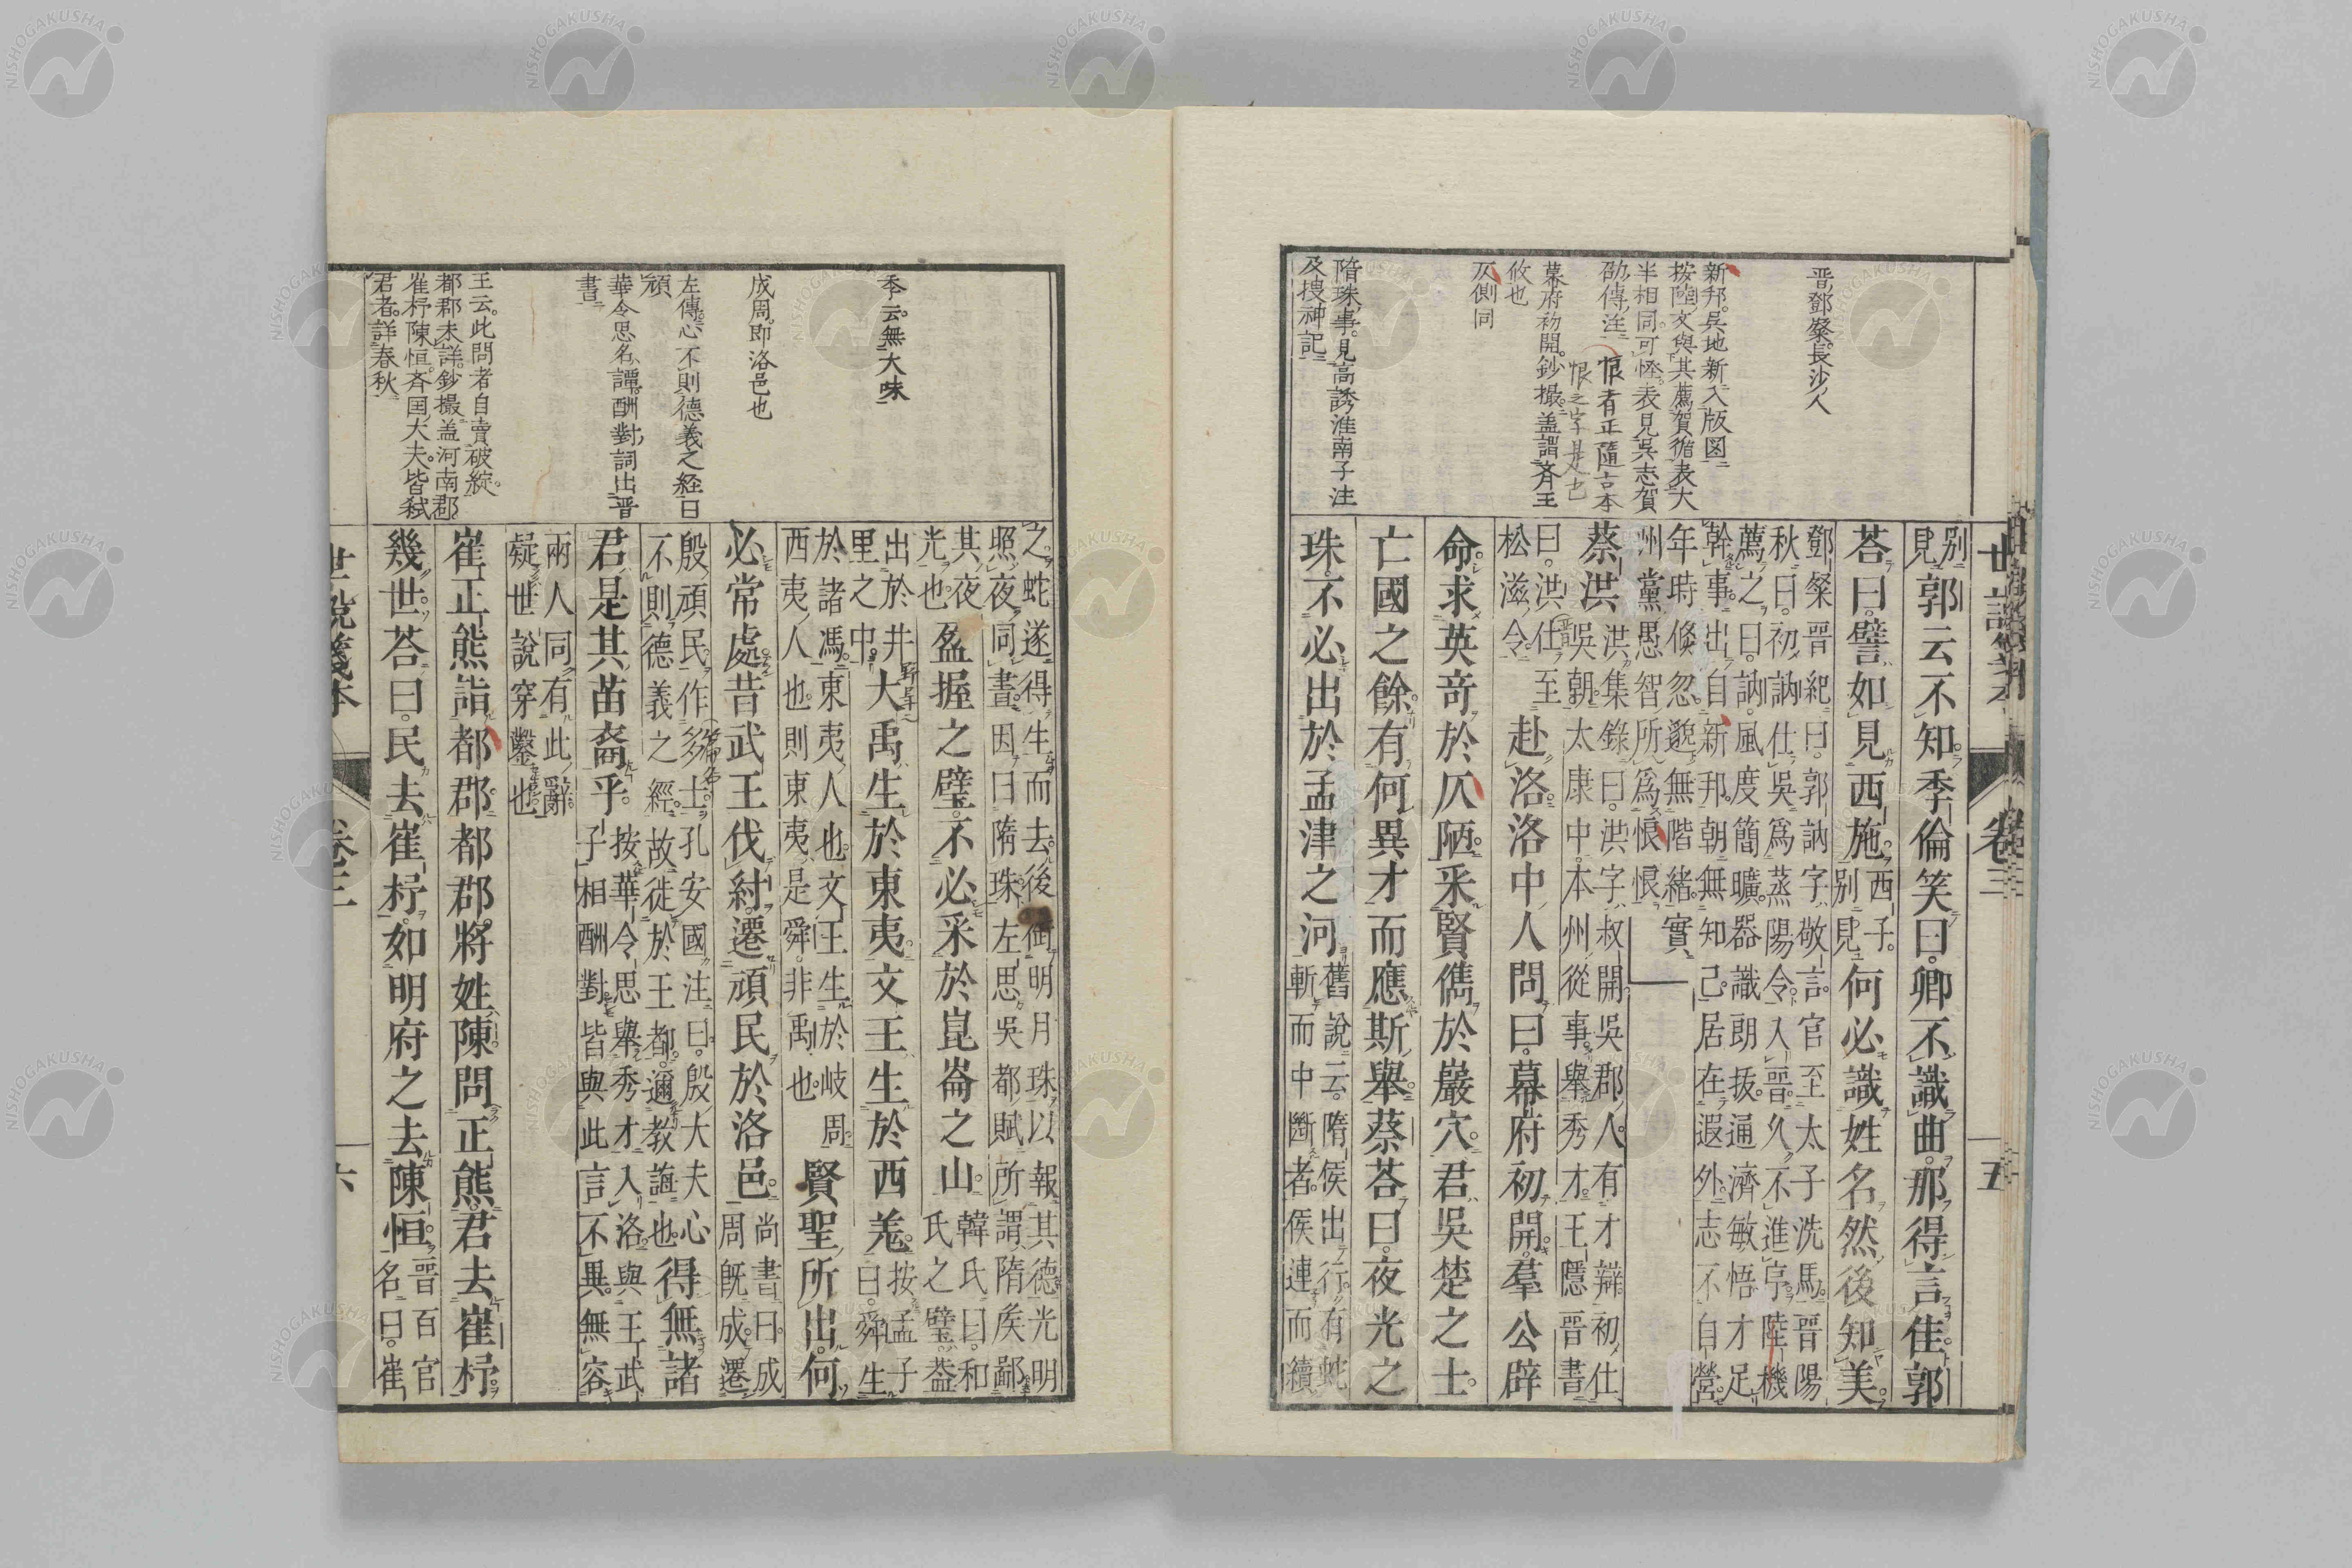 世說箋本 卷三 五
晋鄧粲長沙人
新邦吳地新入版図
按陸文與其薦賀循表大
半相同可怪表見吳志賀
劭傳注
恨者正隨言本
恨之字是也
幕府初開鈔撮盖謂斉王
攸也
仄側同
隋珠事見高誘淮南子注
及捜神記
別見郭云不知季倫笑曰卿不識曲那得言佳郭
荅曰譬如見西施西子別見何必識姓名然後知美
鄧粲晋紀曰郭訥字敬言官至太子洗馬晋陽
秋曰初訥仕吳爲蒸陽令入晋久不進序陸機
薦之曰訥風度簡曠器識朗拔通濟敏悟才足
幹事出自新邦朝無知己居在遐外志不自營
年時倏忽邈無階緒實
州黨愚智所爲恨恨
蔡洪洪集錄曰洪字叔開吳郡人有才辯初仕
吳朝太康中本州從事舉秀才王隱晋書
曰洪仕至
松滋令
赴洛洛中人問曰幕府初開羣公辟
命求英竒於仄陋采賢儁於巖穴君吳楚之士
亡國之餘有何異才而應斯舉蔡荅曰夜光之
珠不必出於孟津之河舊說云隋侯出行有蛇
斬而中斷者侯連而續
季云無大味
成周即洛邑也
左傳心不則德義之経曰
頑
華令思名譚酬對詞出晋
書
王云此問者自賣破綻
都郡未詳鈔撮盖河南郡
崔杼陳恒斉国大夫皆弑
君者詳春秋
之蛇遂得生而去後銜明月珠以報其德光明
照夜同晝因曰隋珠左思吳都賦所謂隋矦鄙
其夜
光也
盈握之璧不必采於崑崙之山韓氏曰和
氏之璧葢
出於井
里之中
大禹生於東夷文王生於西羌按孟子
曰舜生
於諸馮東夷人也文王生於岐周
西夷人也則東夷是舜非禹也
賢聖所出何
必常處昔武王伐紂遷頑民於洛邑尚書曰成
周旣成遷
殷頑民作多士孔安國注曰殷大夫心
不則德義之經故徙於王都邇教誨也
得無諸
君是其苗裔乎按華令思舉秀才入洛與王武
子相酬對皆與此言不異無容
兩人同有此辭
疑世說穿鑿也
崔正熊詣都郡都郡將姓陳問正熊君去崔杼
幾世荅曰民去崔杼如明府之去陳恒晋百官
名曰崔
世說箋本 卷三 六